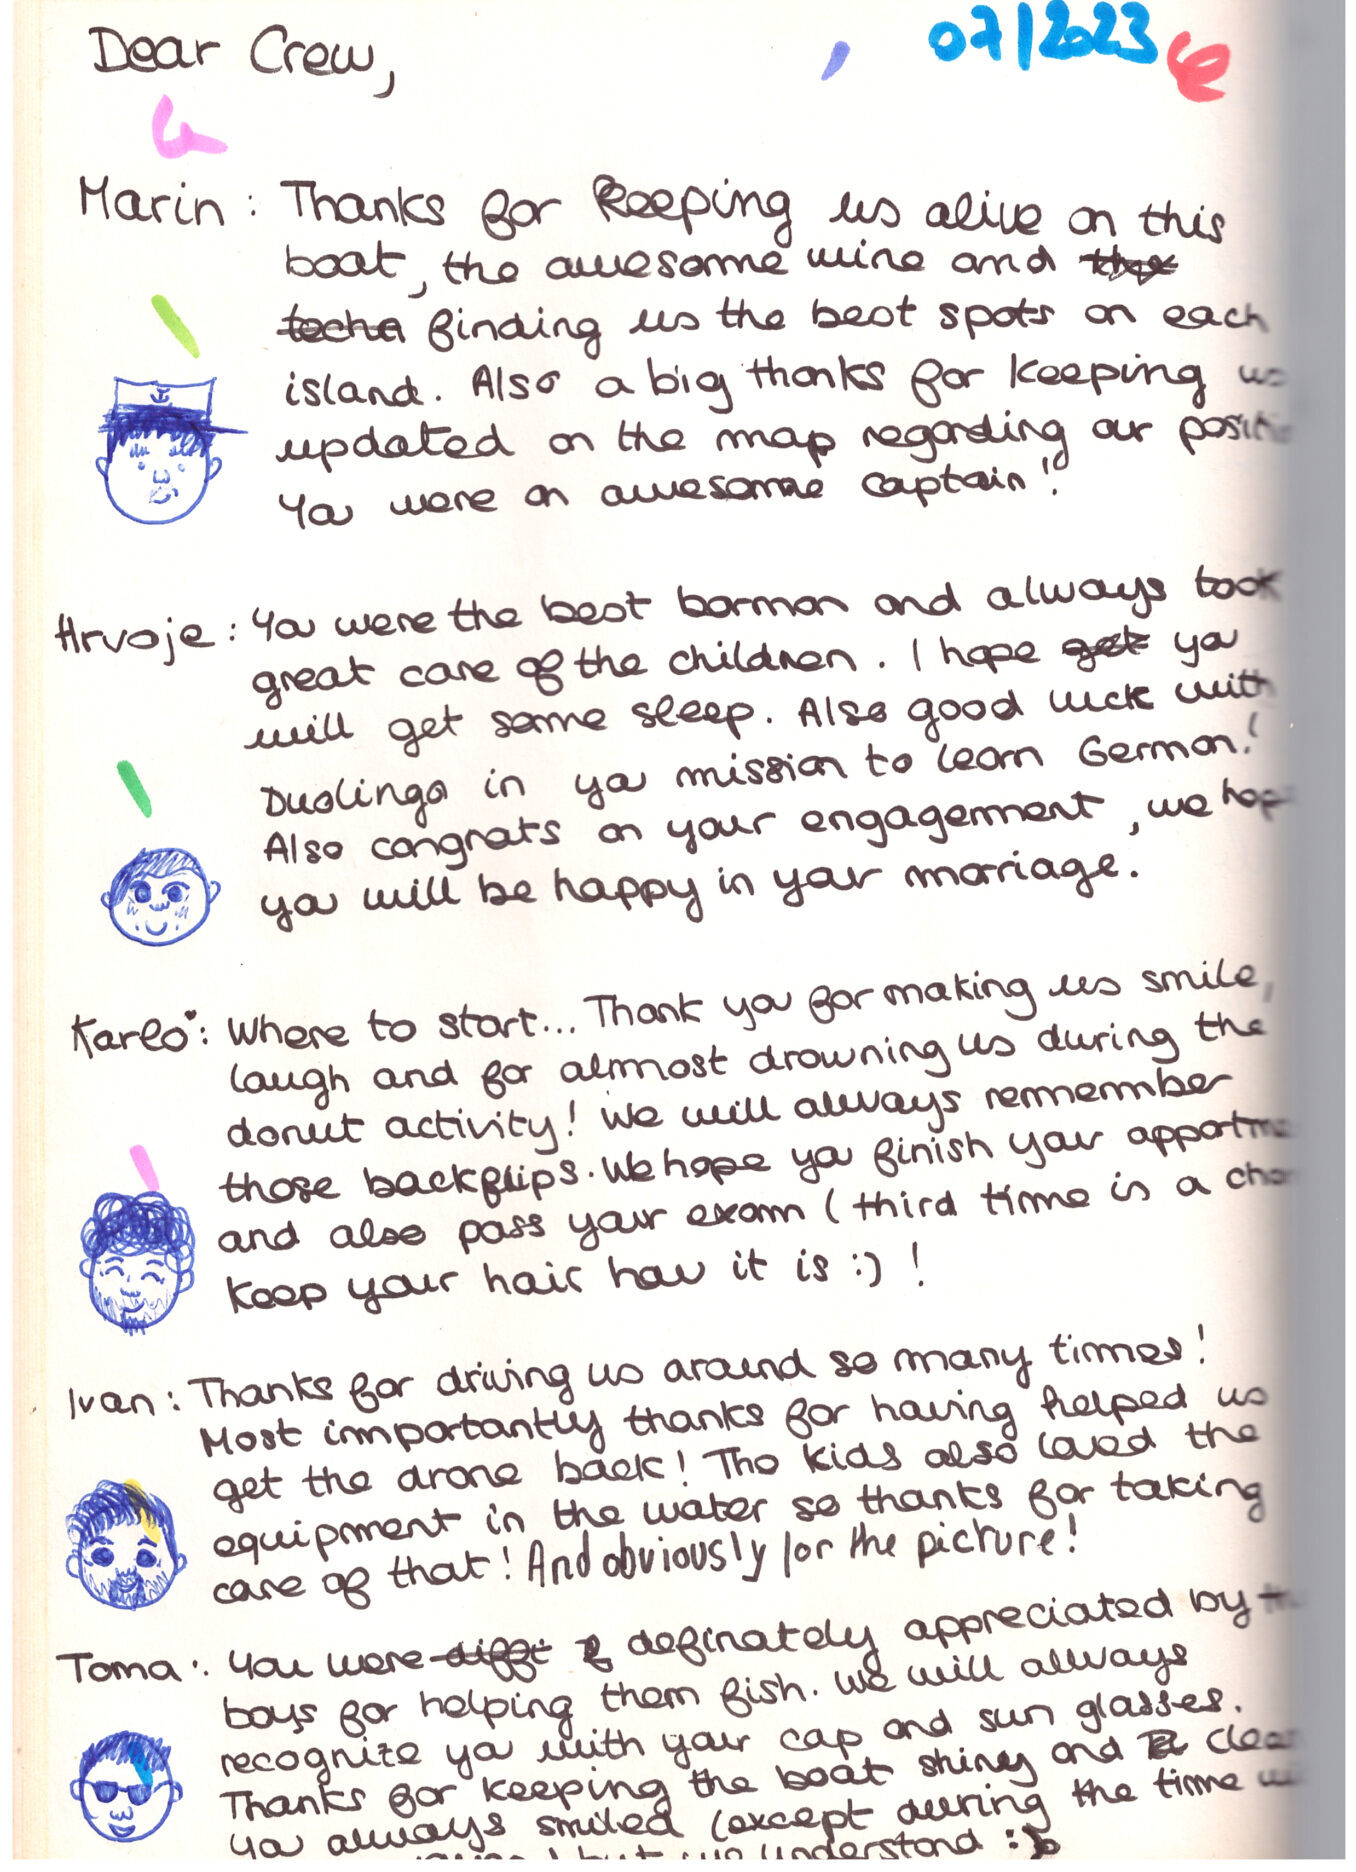 Dear Crew,
07/2023
Marin: Thanks for keeping us alive on this
boat, the awesome wine and
finding us the best spots on each
island. Also a big thanks for keeping us
updated on the map regarding our
You were an awesome captain!
Hrvoje: You were the best barman and always took
great care of the children. I hope get you
will get some sleep. Also good luck with
Duolingo in you mission to learn German!
Also congrats on your engagement, we hope
you will be happy in your marriage.
Karlo: Where to start... Thank you for making us smile,
laugh and for almost drowning us during the
donut activity! We will always remember
those backflips. We hope you finish your
and also pass your exam (third time is a
keep your hair how it is :) !
Ivan: Thanks for driving us around so many times!
Most importantly thanks for having helped us
get the drone back! The kids also loved the
equipment in the water so thanks for taking
care of that! And obviously for the picture!
Toma: You were definately appreciated by
boys for helping them fish. We will always
recognize you with your cap and sun glasses.
Thanks for keeping the boat shiny and
You always smiled (except during the time
but we understand :)